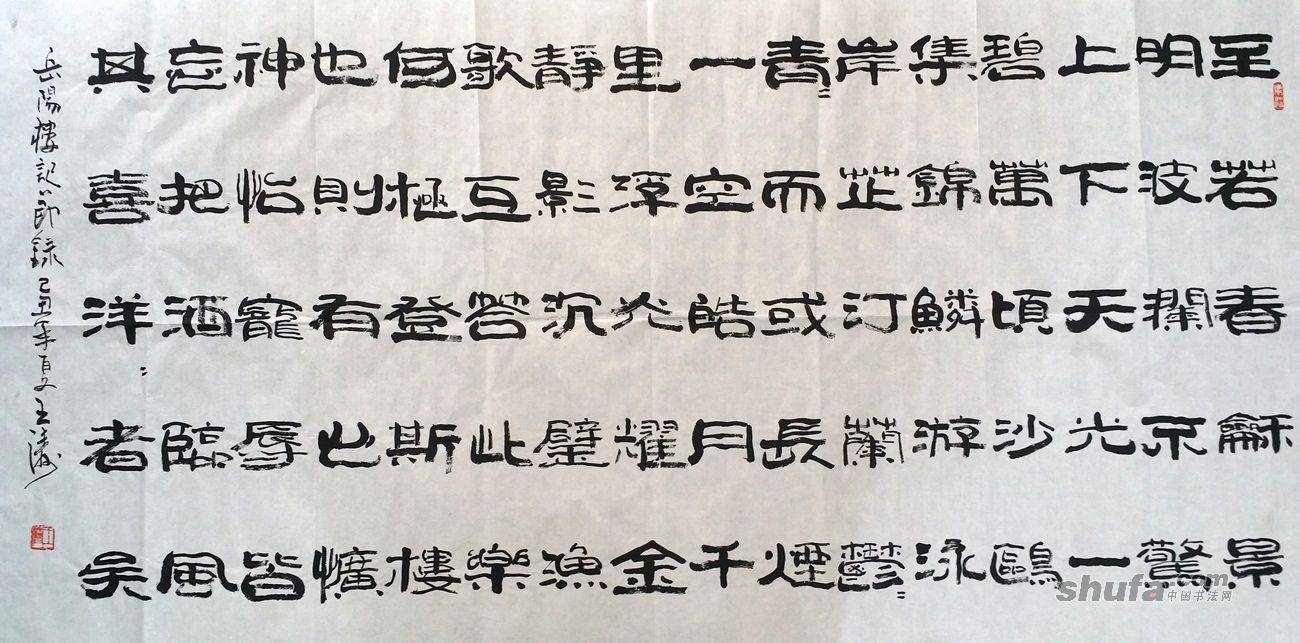 至若春龢景
明波瀾不驚
上下天光一
碧萬頃沙鷗
集錦鱗游泳
岸芷汀蘭鬱〻
青〻而或長煙
一空皓月千
里浮光耀金
靜影沉璧漁
歌互荅此樂
何極登斯樓
也則有心曠
神怡寵辱皆
忘把酒臨風
其喜洋〻者矣
岳陽樓記節録己丑年夏王濤
shufa.com
中国书法网